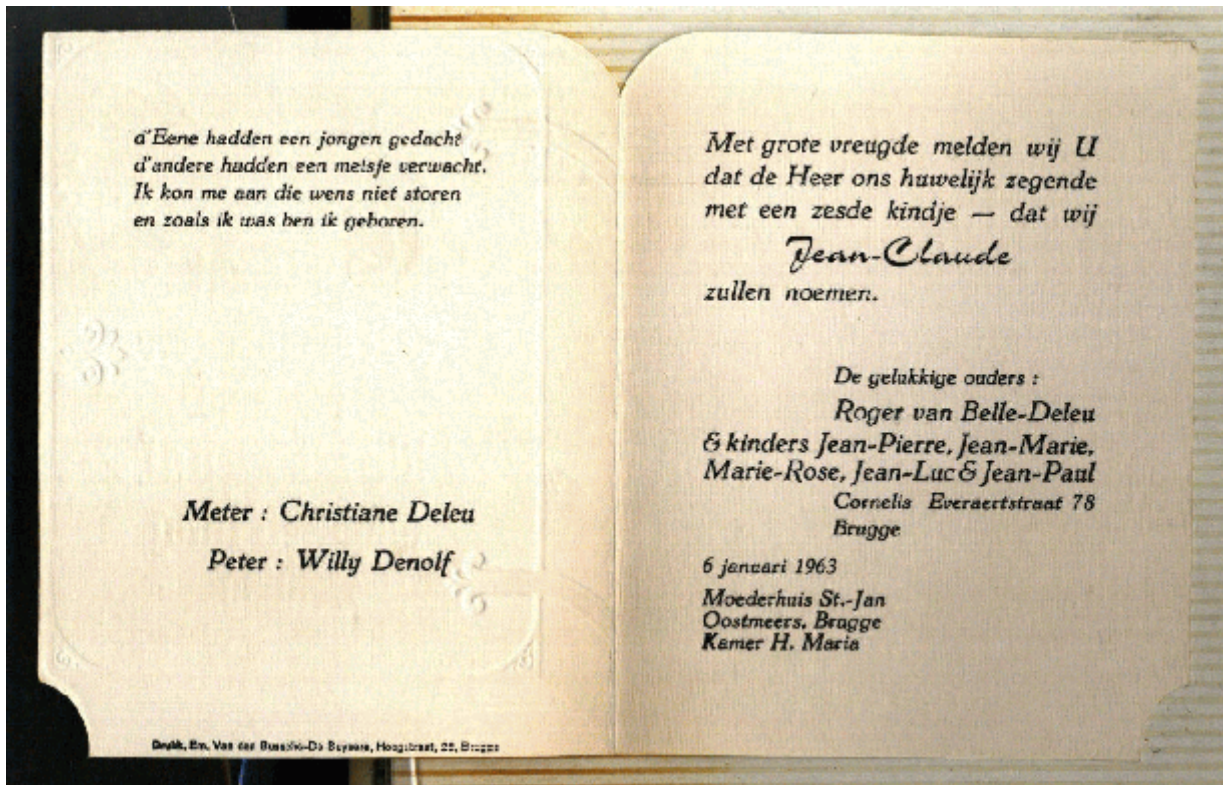 d'Eene hadden een jongen gedacht
d'andere hadden een meisje verwacht.
Ik kon me aan die wens niet storen
en zoals ik was ben ik geboren.
Meter : Christiane Deleu
Peter : Willy Denolf
Druk, Em. Van den Bussche-De Buysere, Hoogstraat, 25, Brugge
Met grote vreugde melden wij U
dat de Heer ons huwelijk zegende
met een zesde kindje — dat wij
Jean-Claude
zullen noemen.
De gelukkige ouders :
Roger van Belle-Deleu
& kinders Jean-Pierre, Jean-Marie,
Marie-Rose, Jean-Luc & Jean-Paul
Cornelis Everaertstraat 78
Brugge
6 januari 1963
Moederhuis St.-Jan
Oostmeers, Brugge
Kamer H. Maria